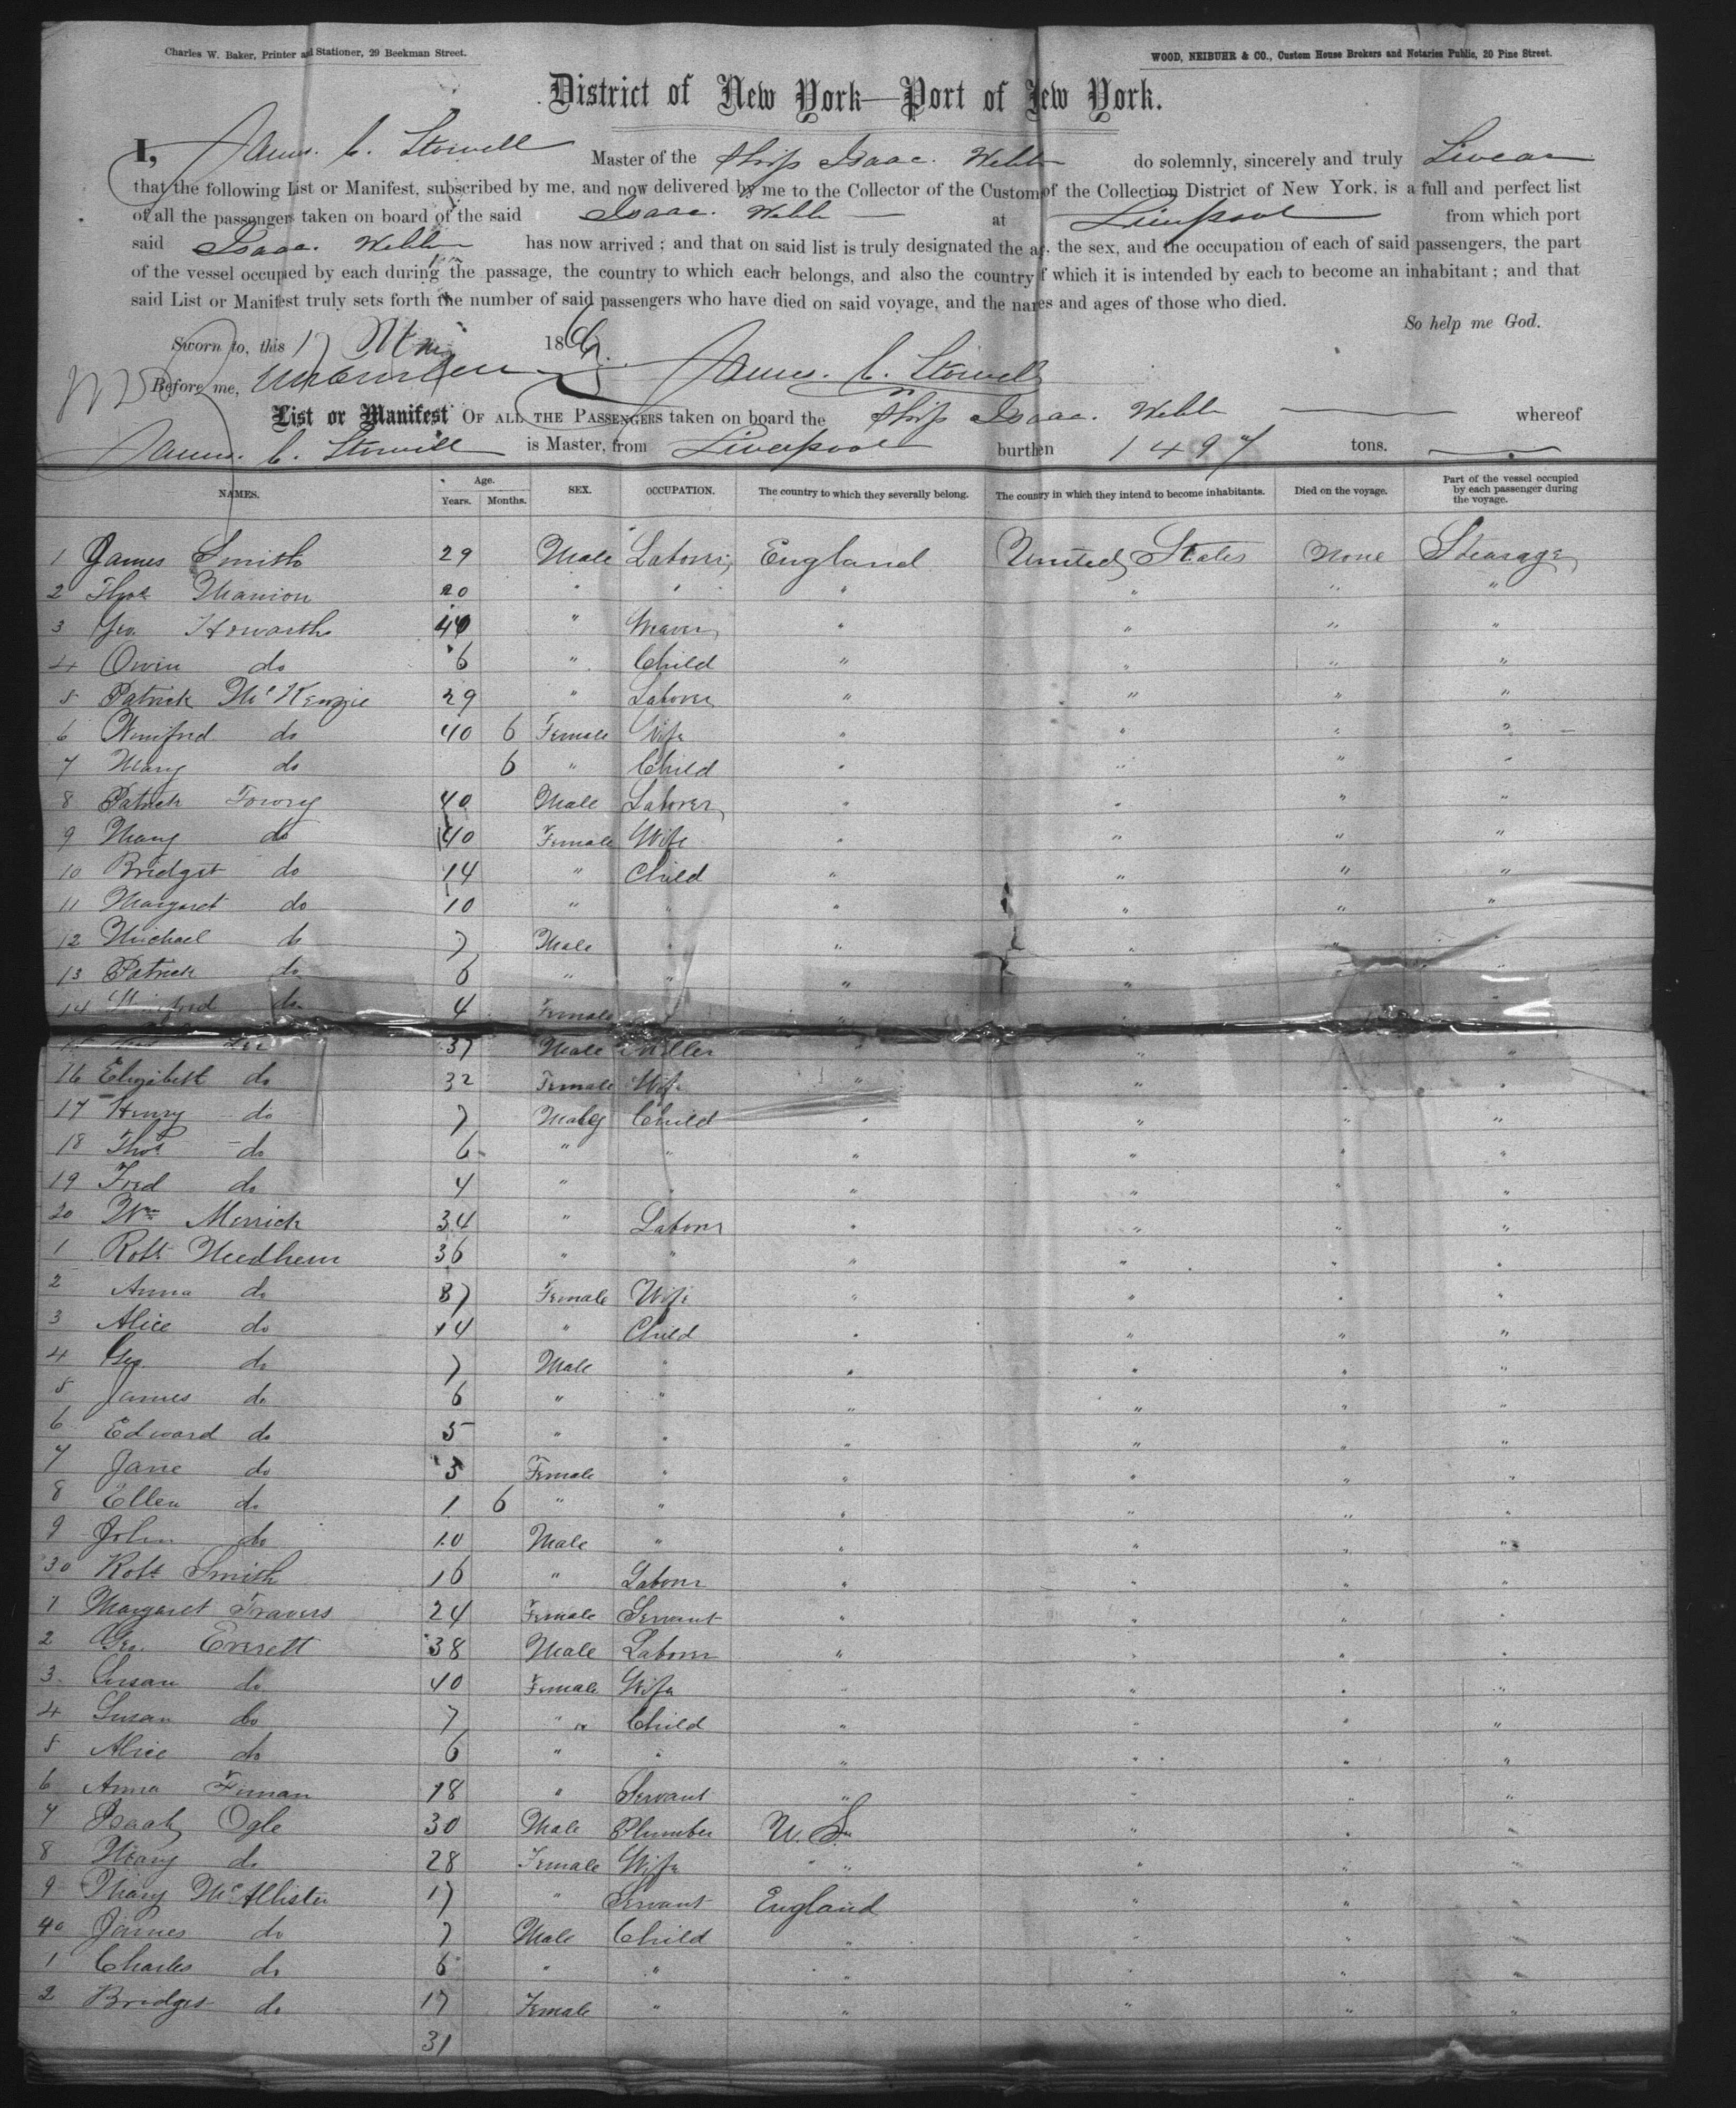 Charles W. Baker, Printer and Stationer, 29 Beekman Street.
WOOD, NEIBUHR & CO., Custom House Brokers and Notaries Public, 20 Pine Street.
District of New York—Port of New York.
I, James. C. Stowell Master of the Ship Isaac. Webb do solemnly, sincerely and truly Swear
that the following List or Manifest, subscribed by me, and now delivered by me to the Collector of the Customs of the Collection District of New York, is a full and perfect list
of all the passengers taken on board of the said Isaac. Webb at Liverpool from which port
said Isaac. Webb has now arrived; and that on said list is truly designated the age, the sex, and the occupation of each of said passengers, the part
of the vessel occupied by each during the passage, the country to which each belongs, and also the country of which it is intended by each to become an inhabitant; and that
said List or Manifest truly sets forth the number of said passengers who have died on said voyage, and the names and ages of those who died.
So help me God.
Sworn to, this 17 186
Before me, James. C. Stowell
List or Manifest OF ALL THE PASSENGERS taken on board the Ship Isaac. Webb whereof
James. C. Stowell is Master, from Liverpool burthen 1497 tons.
NAMES. Age. Years. Months. SEX. OCCUPATION. The country to which they severally belong. The country in which they intend to become inhabitants. Died on the voyage. Part of the vessel occupied by each passenger during the voyage.
1 James Smith 29 Male Laborer England United States None Stearage
2 Thos Manion 20 " " " " " "
3 Geo. Howarth 40 " Weaver " " " "
4 Owin do 6 " Child " " " "
5 Patrick McKenzie 29 " Laborer " " " "
6 Winifred do 40 6 Female Wife " " " "
7 Mary do 6 " Child " " " "
8 Patrick Towry 40 Male Laborer " " " "
9 Mary do 40 Female Wife " " " "
10 Bridget do 14 " Child " " " "
11 Margaret do 10 " " " " " "
12 Michael do 7 Male " " " " "
13 Patrick do 6 " " " " " "
14 do 4 Female " "
15 Lee 37 Male Miller " " "
16 Elizabeth do 32 Female Wife " " " "
17 Henry do 7 Male Child " " " "
18 Thos do 6 " " " " " "
19 Fred do 4 " " " " " "
20 Wm Merrick 34 " Laborer " " " "
1 Robt Needhem 36 " " " " " "
2 Anna do 37 Female Wife " " " "
3 Alice do 14 " Child " " " "
4 Geo. do 7 Male " " " " "
5 James do 6 " " " " " "
6 Edward do 5 " " " " " "
7 Jane do 3 Female " " " " "
8 Ellen do 1 6 " " " " " "
9 John do 10 Male " " " " "
30 Robt Smith 16 " Laborer " " " "
1 Margaret Travers 24 Female Servant " " " "
2 Geo. Everett 38 Male Laborer " " " "
3 Susan do 40 Female Wife " " " "
4 Susan do 7 " Child " " " "
5 Alice do 6 " " " " " "
6 Anna 18 " Servant " " " "
7 Isaak Ogle 30 Male Plumber U. S. " " "
8 Mary do 28 Female Wife " " " "
9 Mary McAllister 17 " Servant England " " "
40 James do 7 Male Child " " " "
1 Charles do 6 " " " " " "
2 Bridget do 17 Female " " " " "
31